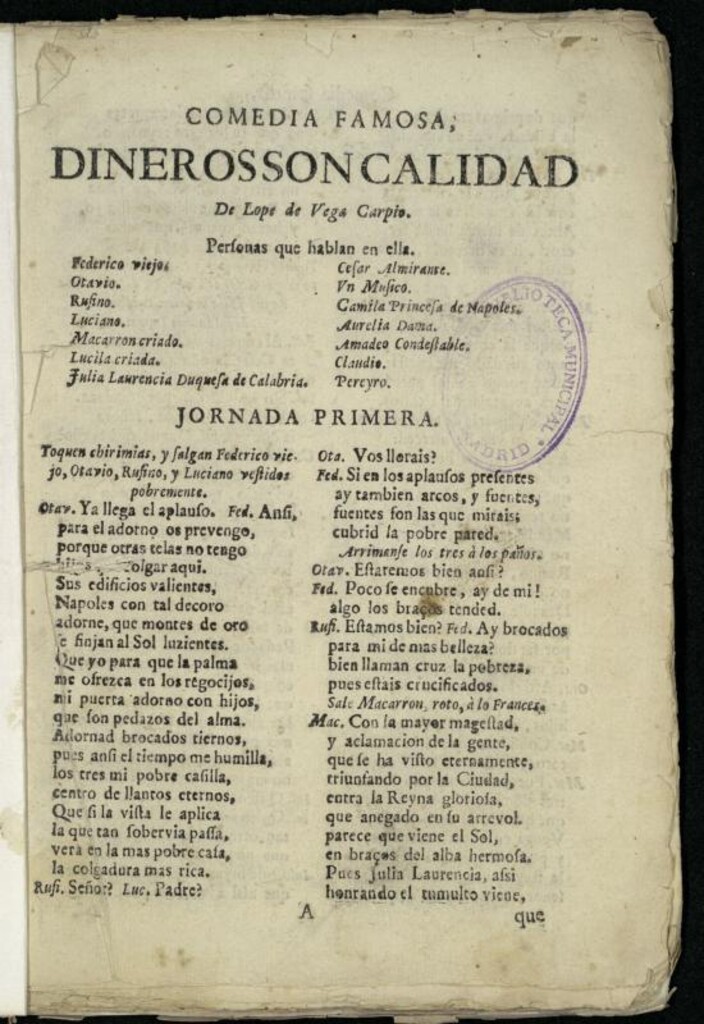 COMEDIA FAMOSA,
DINEROS SON CALIDAD
De Lope de Vega Carpio.
Perſonas que hablan en ella.
Federico viejo.
Otavio.
Rufino.
Luciano.
Macarron criado.
Lucila criada.
Julia Laurencia Duqueſa de Calabria.
Ceſar Almirante.
Vn Muſico.
Camila Princeſa de Napoles.
Aurelia Dama.
Amadeo Condeſtable.
Claudio.
Pereyro.
BIBLIOTECA MUNICIPAL
MADRID
JORNADA PRIMERA.
Toquen chirimias, y ſalgan Federico vie-
jo, Otavio, Rufino, y Luciano veſtidos
pobremente.
Otav. Ya llega el aplauſo. Fed. Anſi,
para el adorno os prevengo,
porque otras telas no tengo
colgar aqui.
Sus edificios valientes,
Napoles con tal decoro
adorne, que montes de oro
ſe finjan al Sol luzientes.
Que yo para que la palma
me ofrezca en los regocijos,
mi puerta adorno con hijos,
que ſon pedazos del alma.
Adornad brocados tiernos,
pues anſi el tiempo me humilla,
los tres mi pobre caſilla,
centro de llantos eternos,
Que ſi la viſta le aplica
la que tan ſobervia paſſa,
verà en la mas pobre caſa,
la colgadura mas rica.
Rufi. Señor? Luc. Padre?
Ota. Vos llorais?
Fed. Si en los aplauſos preſentes
ay tambien arcos, y fuentes,
fuentes ſon las que mirais;
cubrid la pobre pared.
Arrimanſe los tres à los paños.
Otav. Eſtaremos bien anſi?
Fed. Poco ſe encubre, ay de mi!
algo los braços tended.
Rufi. Eſtamos bien? Fed. Ay brocados
para mi de mas belleza?
bien llaman cruz la pobreza,
pues eſtais crucificados.
Sale Macarron, roto, à lo Frances.
Mac. Con la mayor mageſtad,
y aclamacion de la gente,
que ſe ha viſto eternamente,
triunfando por la Ciudad,
entra la Reyna glorioſa,
que anegado en ſu arrevol.
parece que viene el Sol,
en braços del alba hermoſa.
Pues Julia Laurencia, aſsi
honrando el tumulto viene,
A
que